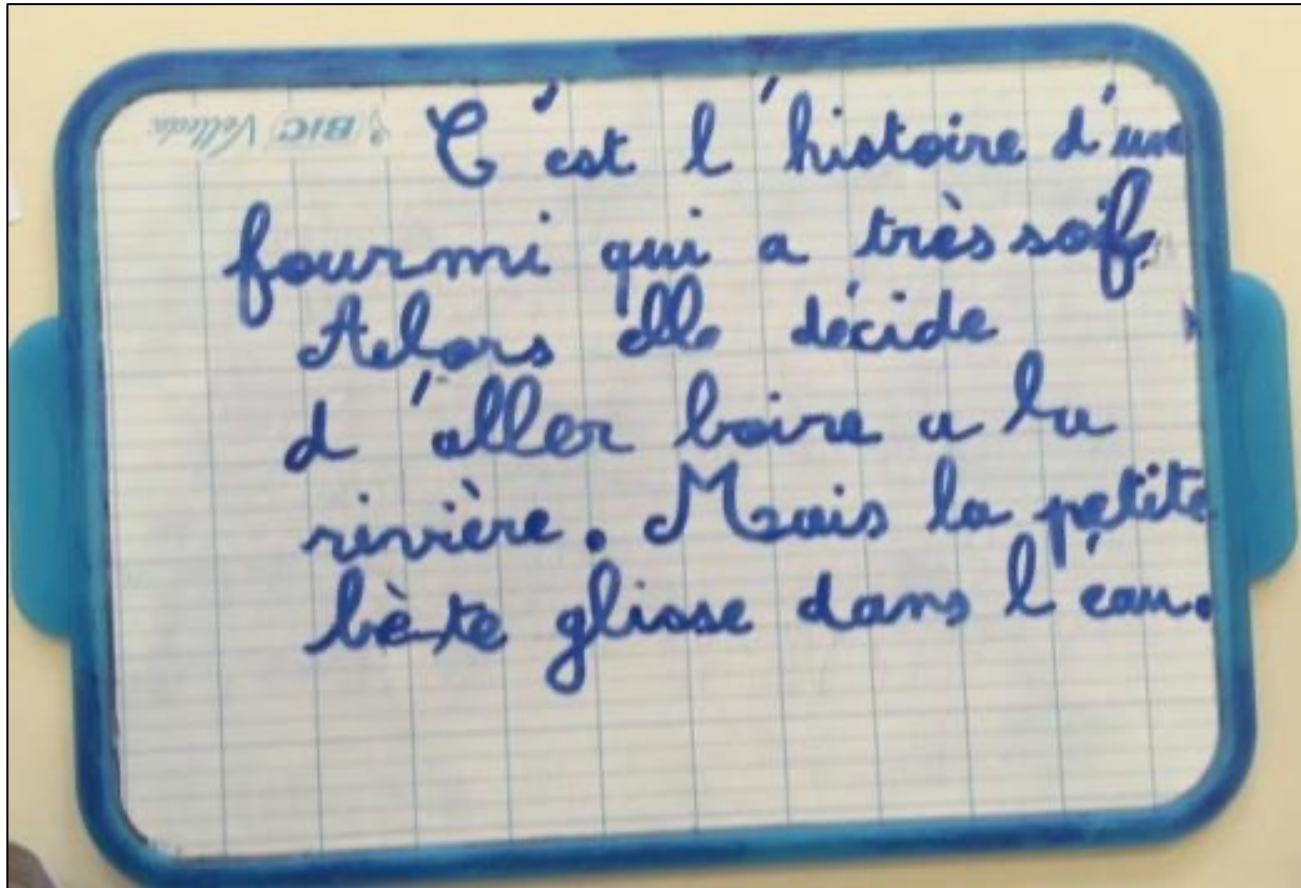 BIC Velleda
C'est l'histoire d'une
fourmi qui a très soif.
Alors elle décide
d'aller boire a la
rivière. Mais la petite
bète glisse dans l'eau.